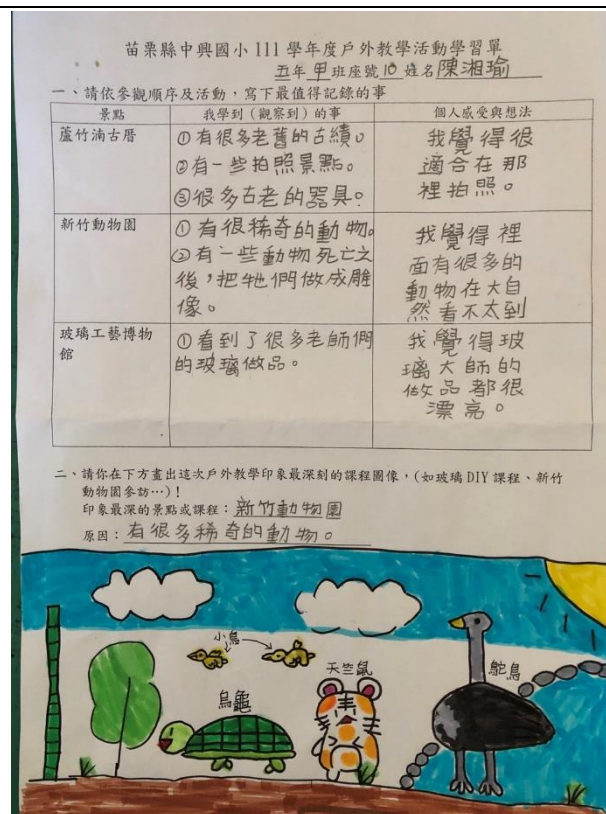 苗栗縣中興國小 111 學年度戶外教學活動學習單
五年甲班座號10姓名陳湘瑜
一、請依參觀順序及活動,寫下最值得記錄的事
景點
我學到(觀察到)的事
個人感受與想法
蘆竹湳古厝
①有很多老舊的古績。
②有一些拍照景點。
③很多古老的器具。
我覺得很
適合在那
裡拍照。
新竹動物園
①有很稀奇的動物。
②有一些動物死亡之
後,把牠們做成雕
像。
我覺得裡
面有很多的
動物在大自
然看不太到
玻璃工藝博物
館
①看到了很多老師們
的玻璃做品。
我覺得玻
璃大師的
做品都很
漂亮。
二、請你在下方畫出這次戶外教學印象最深刻的課程圖像,(如玻璃 DIY 課程、新竹
動物園參訪…)!
印象最深的景點或課程:新竹動物園
原因:有很多稀奇的動物。
小鳥
天竺鼠
鴕鳥
烏龜